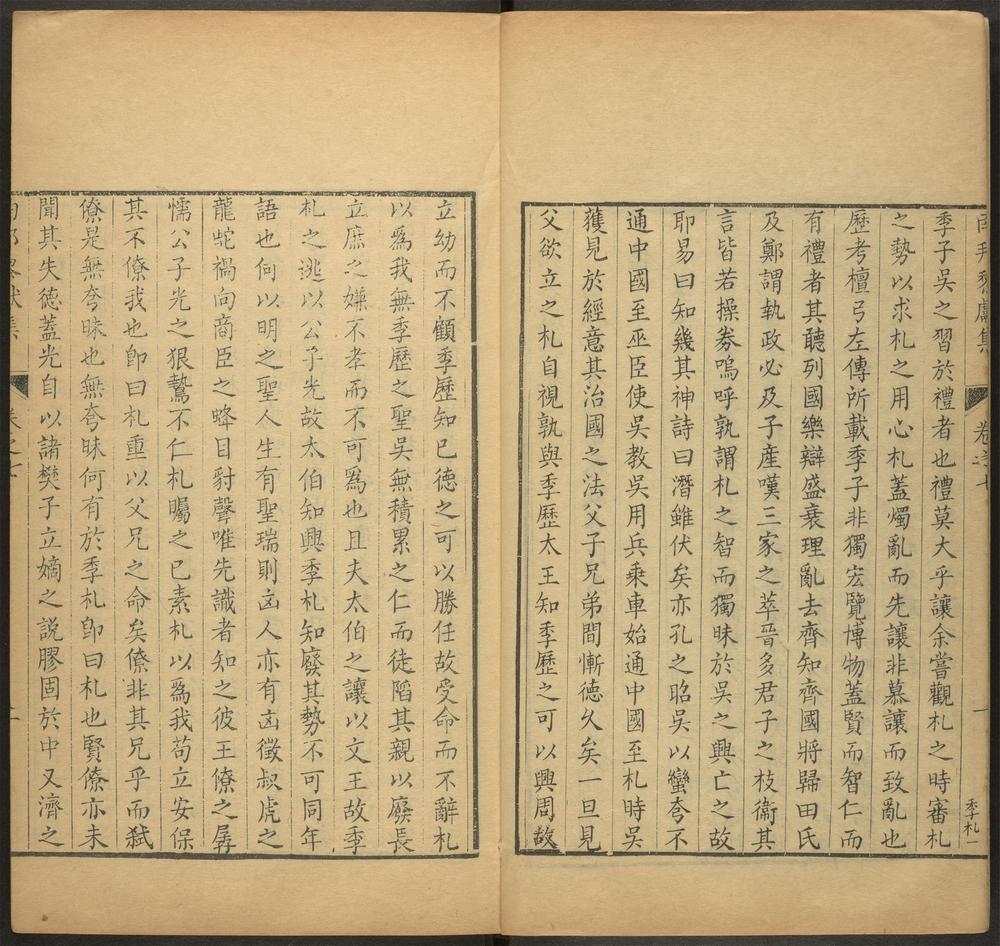 卷之七
季札一
季子吳之習於禮者也禮莫大乎讓余嘗觀札之時審札
之勢以求札之用心札蓋燭亂而先讓非慕讓而致亂也
歷考檀弓左傳所載季子非獨宏覽博物蓋賢而智仁而
有禮者其聽列國樂辯盛衰理亂去齊知齊國將歸田氏
及鄭謂執政必及子產嘆三家之萃晉多君子之枝衞其
言皆若操券嗚呼孰謂札之智而獨昧於吳之興亡之故
耶易曰知幾其神詩曰潛雖伏矣亦孔之昭吳以蠻夸不
通中國至巫臣使吳教吳用兵乘車始通中國至札時吳
獲見於經意其治國之法父子兄弟間慚德久矣一旦見
父欲立之札自視孰與季歷太王知季歷之可以興周故
立幼而不顧季歷知已德之可以勝任故受命而不辭札
以爲我無季歷之聖吳無積累之仁而徒陷其親以廢長
立庶之嫌不孝而不可爲也且夫太伯之讓以文王故季
札之逃以公子光故太伯知興季札知廢其勢不可同年
語也何以明之聖人生有聖瑞則凶人亦有凶徵叔虎之
龍蛇禍向商臣之蜂目豺聲唯先識者知之彼王僚之孱
懦公子光之狠鷙不仁札矚之已素札以爲我苟立安保
其不僚我也卽曰札重以父兄之命矣僚非其兄乎而弒
僚是無夸昧也無夸昧何有於季札卽曰札也賢僚亦未
聞其失德蓋光自以諸樊子立嫡之説膠固於中又濟之
卷之七